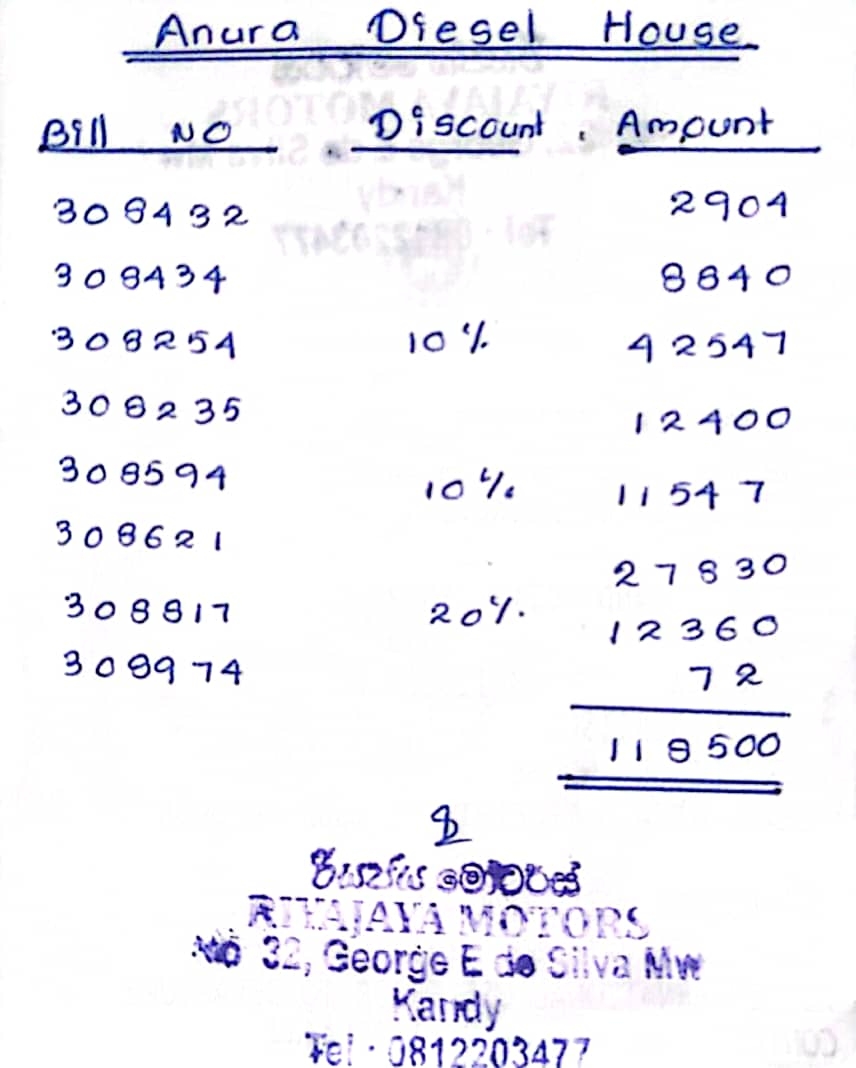 Anura Diesel House
Bill NO Discount. Amount
308432 2904
308434 8840
308254 10% 42547
308235 12400
308594 10% 11547
308621 27830
308817 20% 12360
308974 72
118500
රියජය මෝටර්ස්
RIYAJAYA MOTORS
No 32, George E de Silva Mw
Kandy
Tel · 0812203477